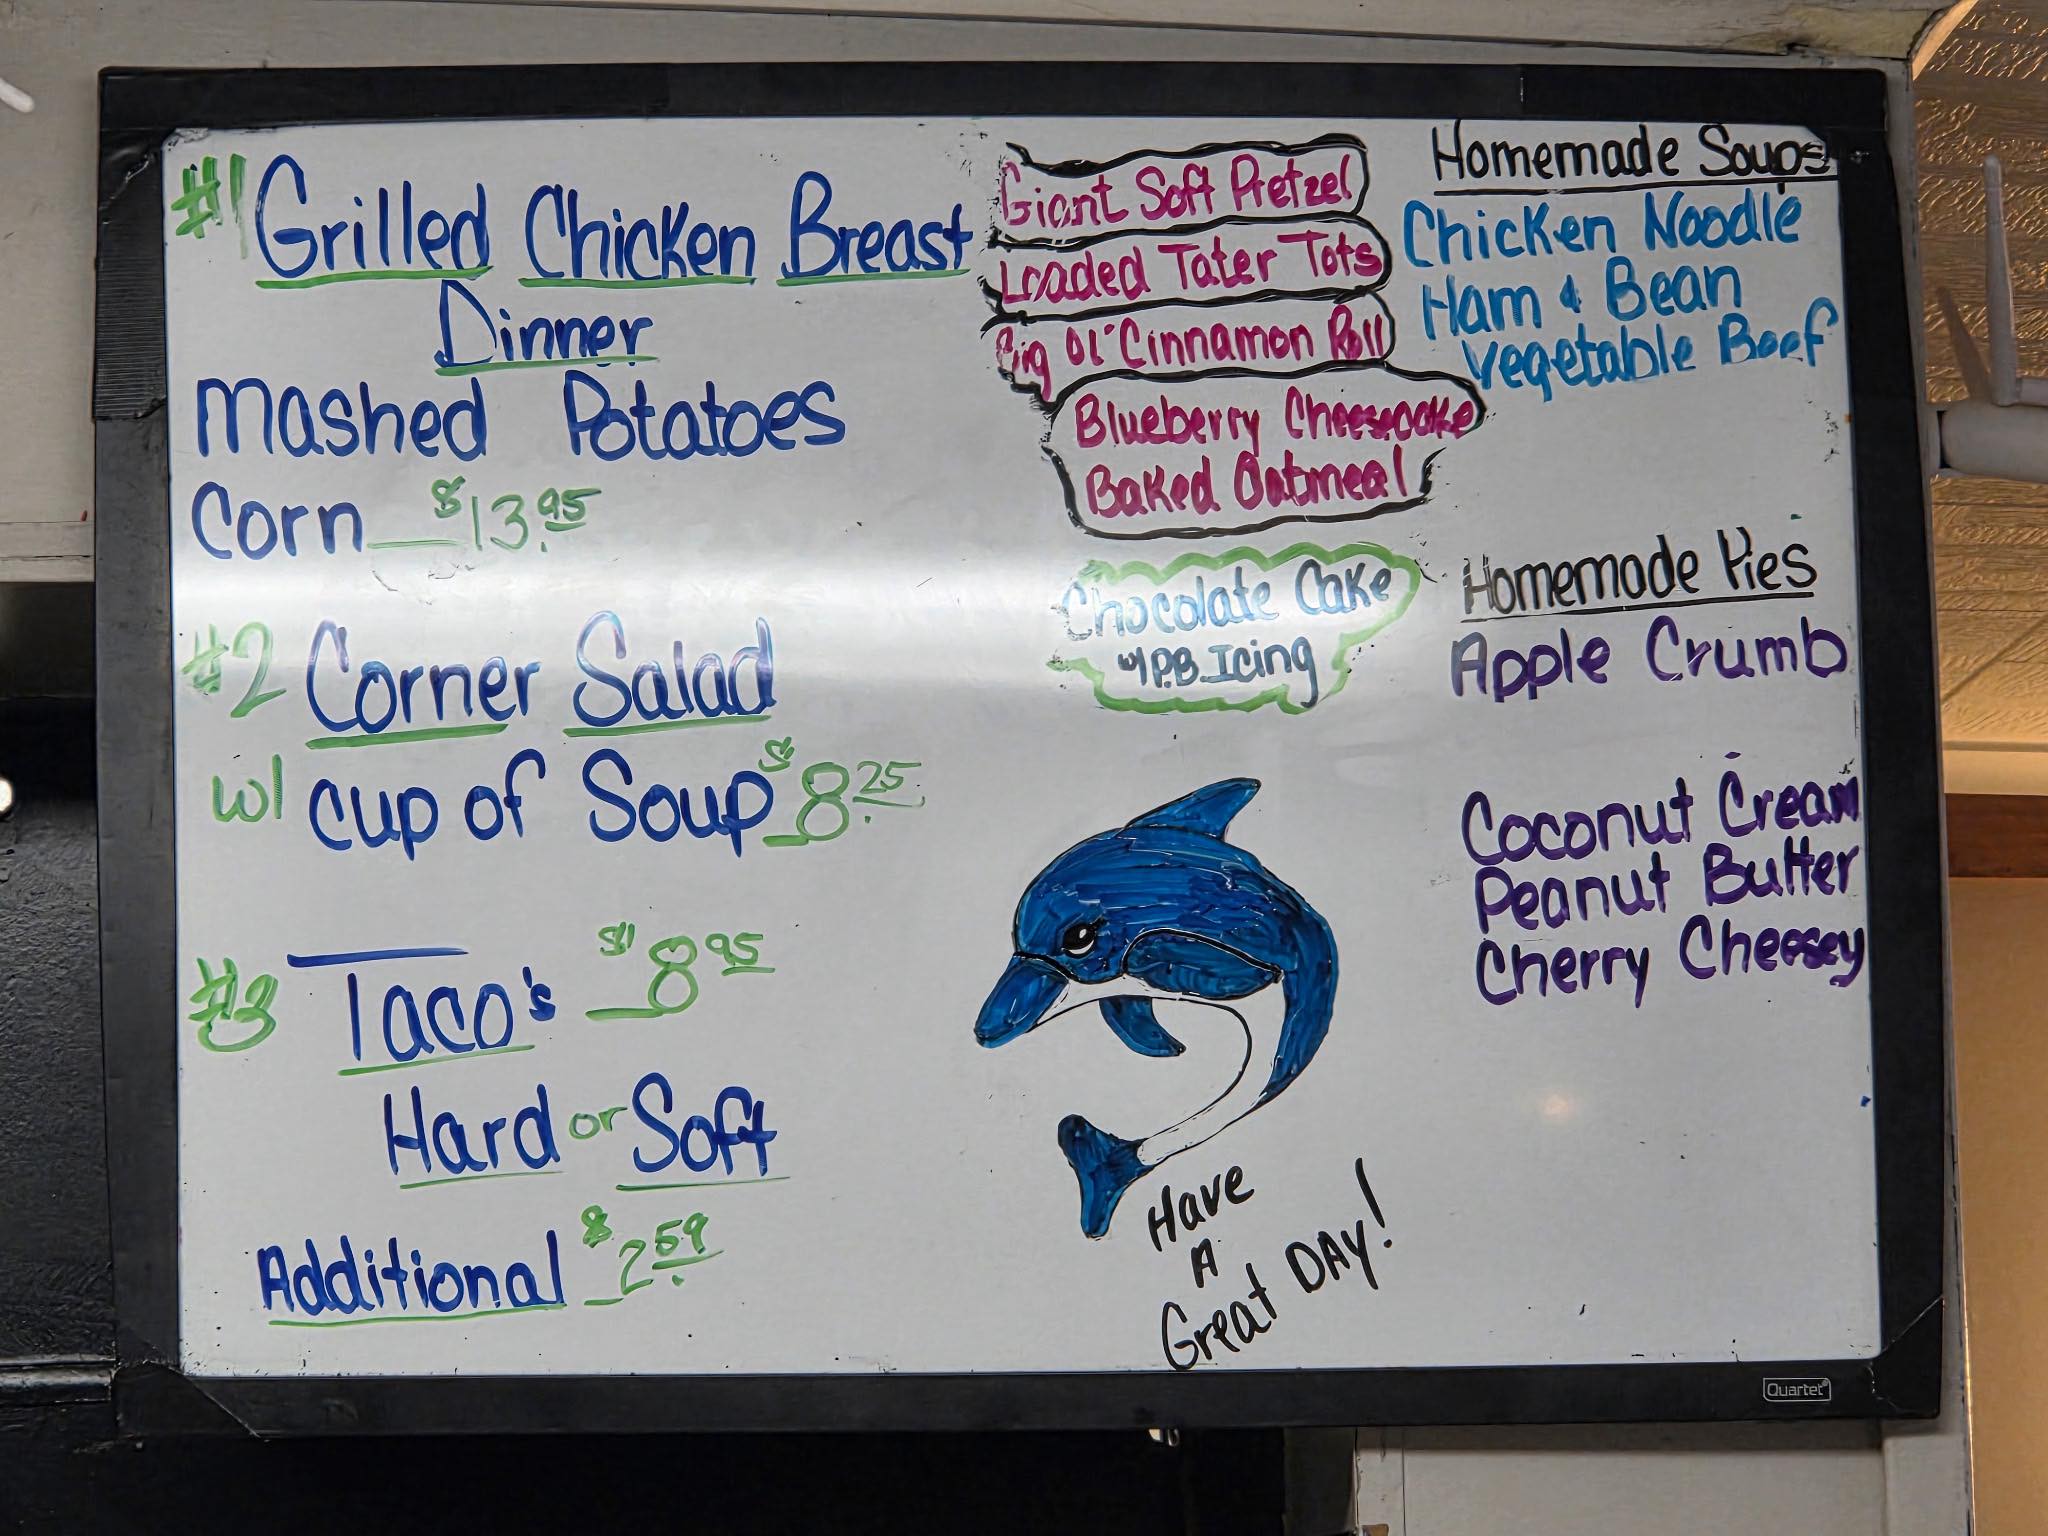 #1 Grilled Chicken Breast
Dinner
Mashed Potatoes
Corn $13.95
#2 Corner Salad
w/ Cup of Soup $8.25
#3 Taco's $8.95
Hard or Soft
Additional $2.59
Giant Soft Pretzel
Loaded Tater Tots
Big Ol' Cinnamon Roll
Blueberry Cheesecake
Baked Oatmeal
Chocolate Cake
w/ P.B. Icing
Have
A
Great DAY!
Homemade Soups
Chicken Noodle
Ham & Bean
Vegetable Beef
Homemade Pies
Apple Crumb
Coconut Cream
Peanut Butter
Cherry Cheesey
Quartet®